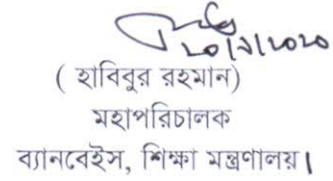 ( হাবিবুর রহমান)
মহাপরিচালক
ব্যানবেইস, শিক্ষা মন্ত্রণালয়।